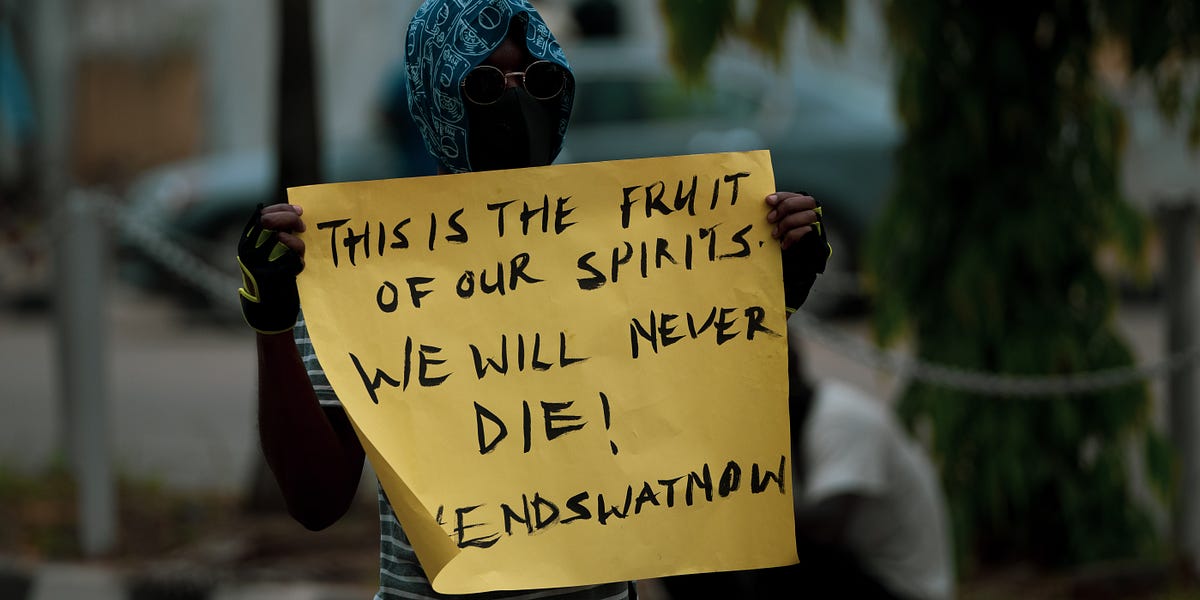 THIS IS THE FRUIT
OF OUR SPIRITS.
WE WILL NEVER
DIE!
#ENDSWATNOW